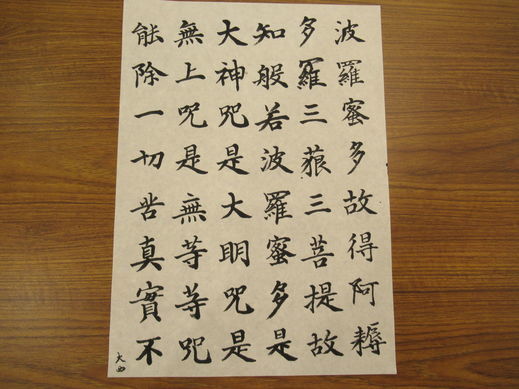 波羅蜜多故得阿耨
多羅三藐三菩提故
知般若波羅蜜多是
大神咒是大明咒是
無上咒是無等等咒
能除一切苦真實不
大西